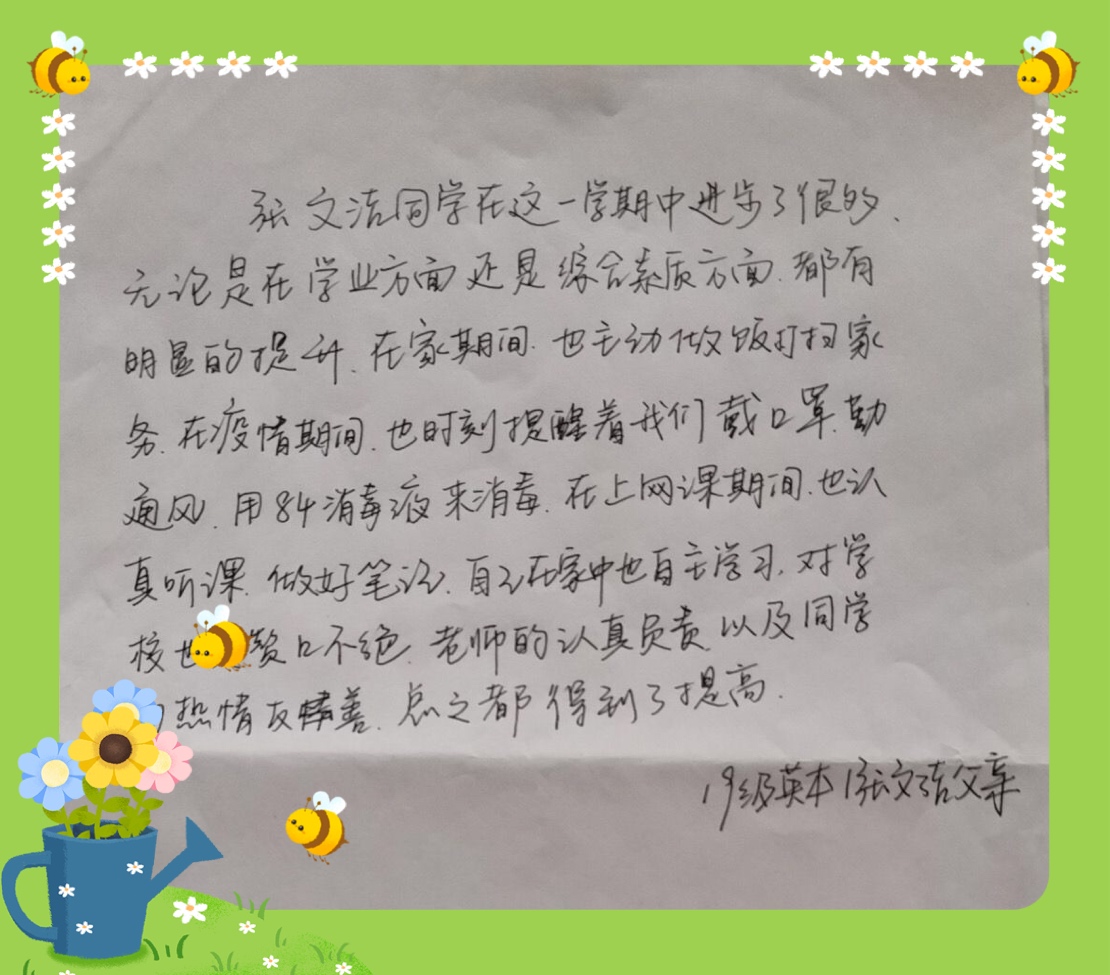 张文洁同学在这一学期中进步了很多、
无论是在学业方面还是综合素质方面.都有
明显的提升.在家期间.也主动做饭打扫家
务.在疫情期间.也时刻提醒着我们戴口罩.勤
通风.用84消毒液来消毒.在上网课期间.也认
真听课.做好笔记.自己在家中也自主学习.对学
校也赞口不绝.老师的认真负责.以及同学
热情友善.总之都得到了提高.
19级英本1张文洁父亲